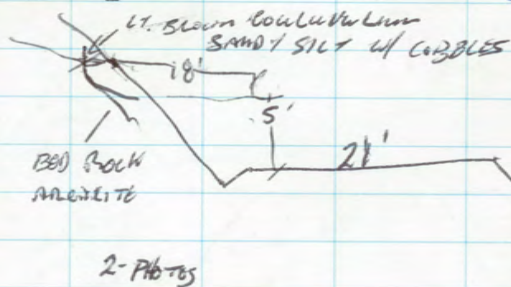 LT. BROWN COLLUVIUM
SANDY SILT W/ COBBLES
18'
5'
21'
BED ROCK
2- PHOTOS